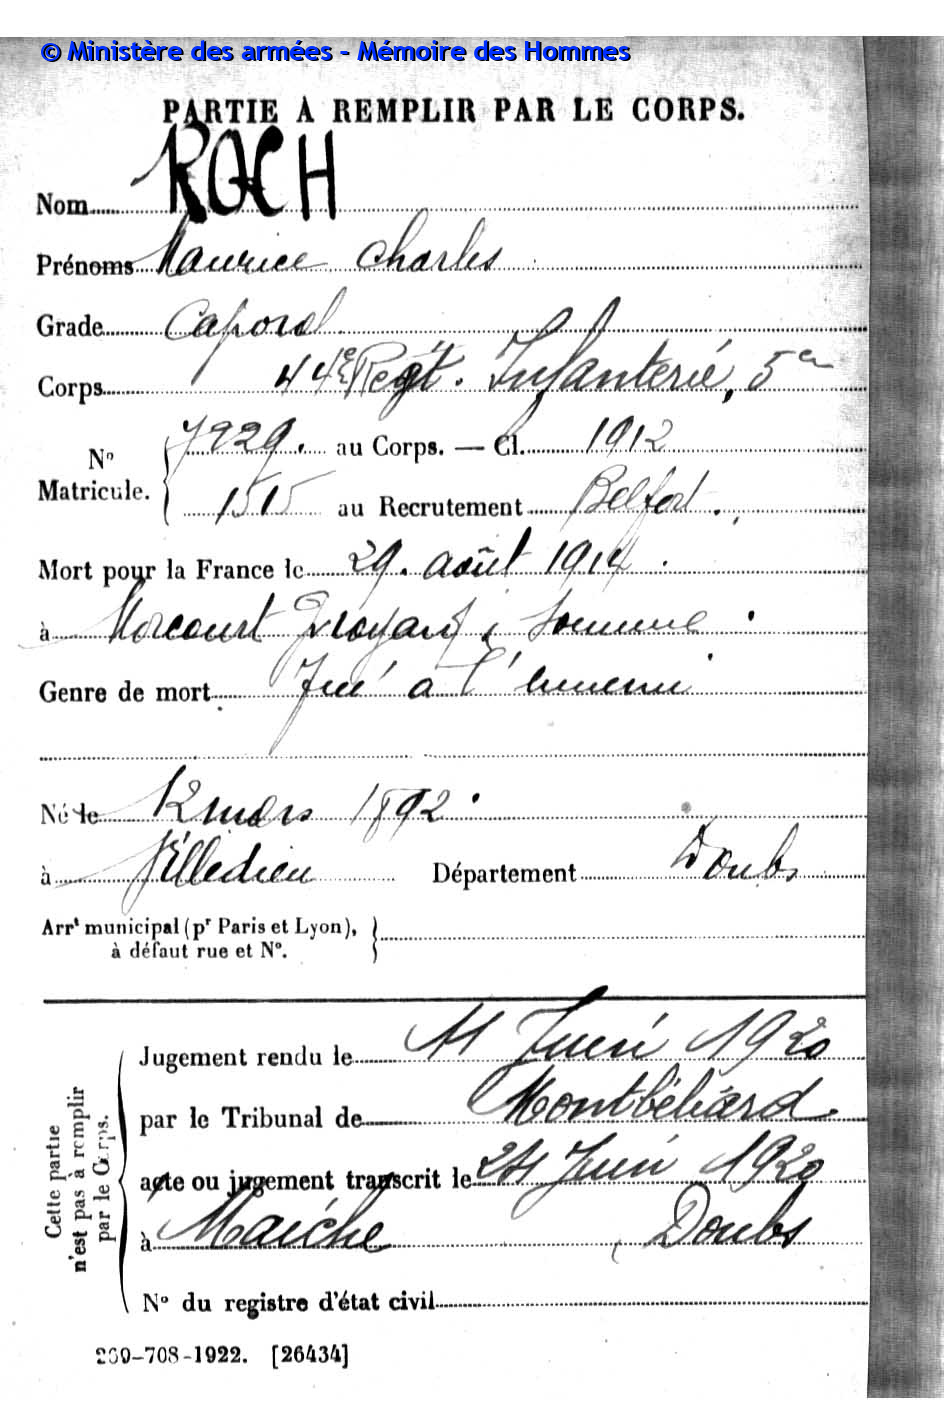 © Ministère des armées - Mémoire des Hommes
PARTIE À REMPLIR PAR LE CORPS.
Nom ROCH
Prénoms Maurice Charles
Grade Caporal
Corps 44e Régt. Infanterie, 5e
N° Matricule. 7229. au Corps. — Cl. 1912
1515 au Recrutement Belfort.
Mort pour la France le 29. août 1914.
à Morcourt Proyart, Somme.
Genre de mort Tué à l'ennemi
Né le 12 mars 1892.
à Villedieu Département Doubs
Arrt municipal (pr Paris et Lyon),
à défaut rue et N°.
Cette partie n'est pas à remplir par le Corps.
Jugement rendu le 11 Juin 1920
par le Tribunal de Montbéliard.
acte ou jugement transcrit le 24 Juin 1920
à Maîche, Doubs
N° du registre d'état civil
269-708-1922. [26434]